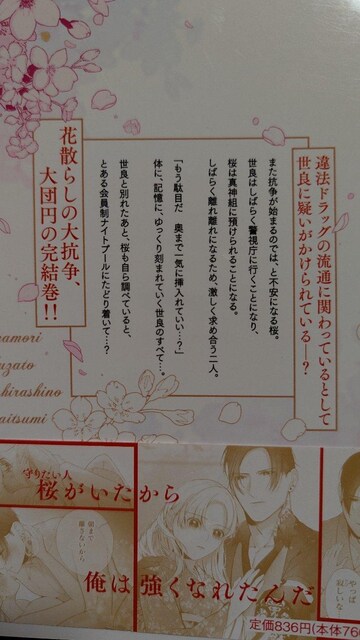 違法ドラッグの流通に関わっているとして
世良に疑いがかけられている―?
また抗争が始まるのでは、と不安になる桜。
世良はしばらく警視庁に行くことになり、
桜は真神組に預けられることになる。
しばらく離れ離れになるため、激しく求め合う二人。
「もう駄目だ 奥まで一気に挿入れていい…?」
体に、記憶に、ゆっくり刻まれていく世良のすべて…。
世良と別れたあと、桜も自ら調べていると、
とある会員制ナイトプールにたどり着いて…?
花散らしの大抗争、
大団円の完結巻!!
namori
uzato
hirashino
aitsumi
守りたい人
桜がいたから
俺は強くなれたんだ
やっぱ
寂しいな…
定価836円(本体76